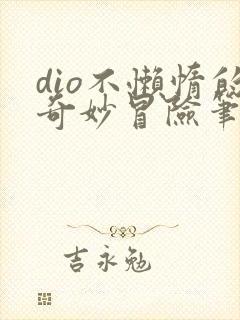 dio不懒惰的
奇妙冒险笔
吉永勉